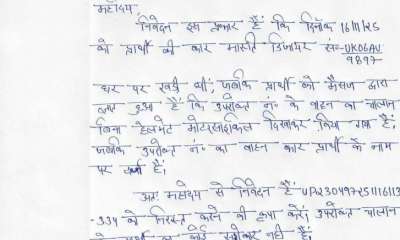 महोदय,
निवेदन इस प्रकार है कि दिनाँक 16/11/25
को प्रार्थी की कार मारुति डिजायर सं०-UK06AV
9897
घर पर खड़ी थी, जबकि प्रार्थी को मैसेज द्वारा
हुआ है कि उपरोक्त नं० के वाहन का चालान
बिना हेलमेट मोटरसाइकिल दिखाकर किया गया है,
जबकि उपरोक्त नं० का वाहन कार प्रार्थी के नाम
पर दर्ज है।
अतः महोदय से निवेदन है
334 को निरस्त करने की कृपा करें। उपरोक्त चालान
से प्रार्थी का कोई सरोकार नहीं है।